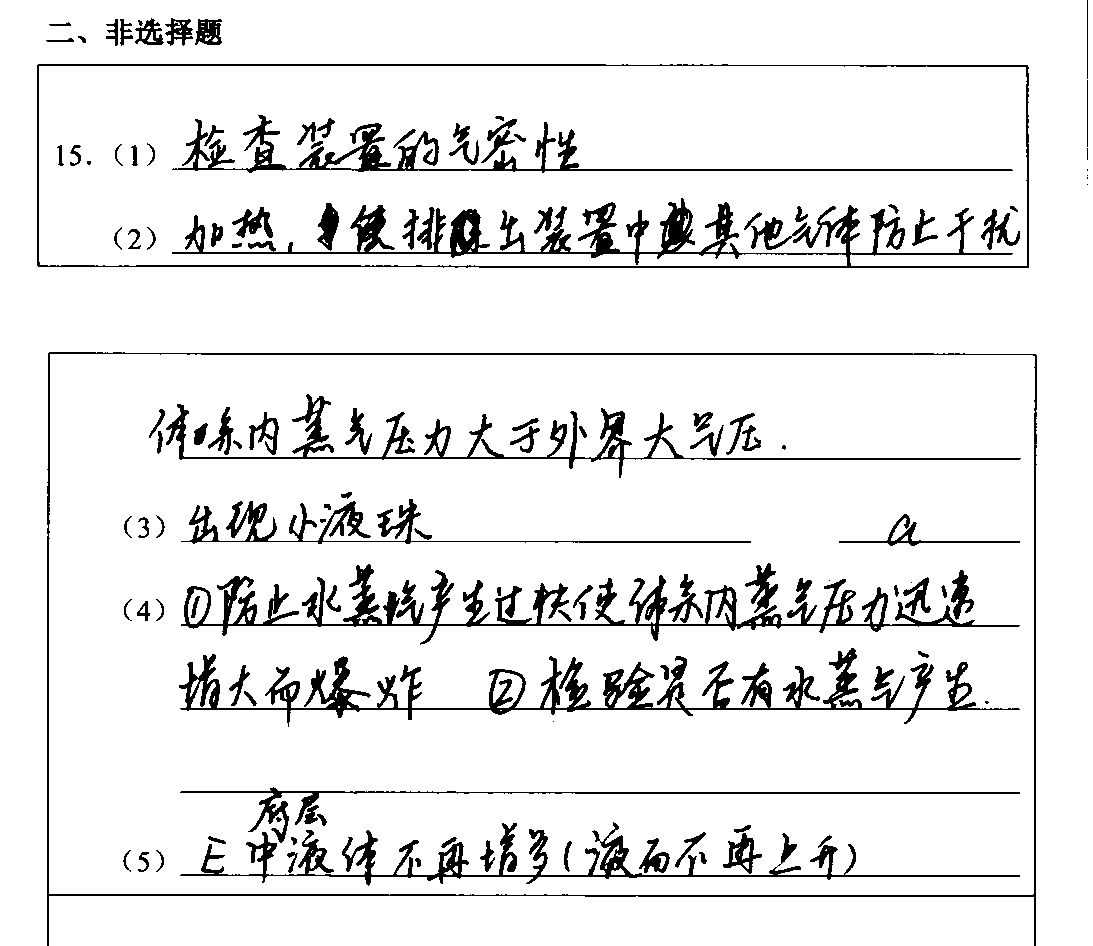 二、非选择题
15.(1) 检查装置的气密性
(2) 加热,使排出装置中其他气体防止干扰
体系内蒸气压力大于外界大气压.
(3) 出现小液珠 a
(4) ①防止水蒸汽产生过快使体系内蒸气压力迅速
增大而爆炸 ②检验是否有水蒸气产生.
底层
(5) E中液体不再增多(液面不再上升)